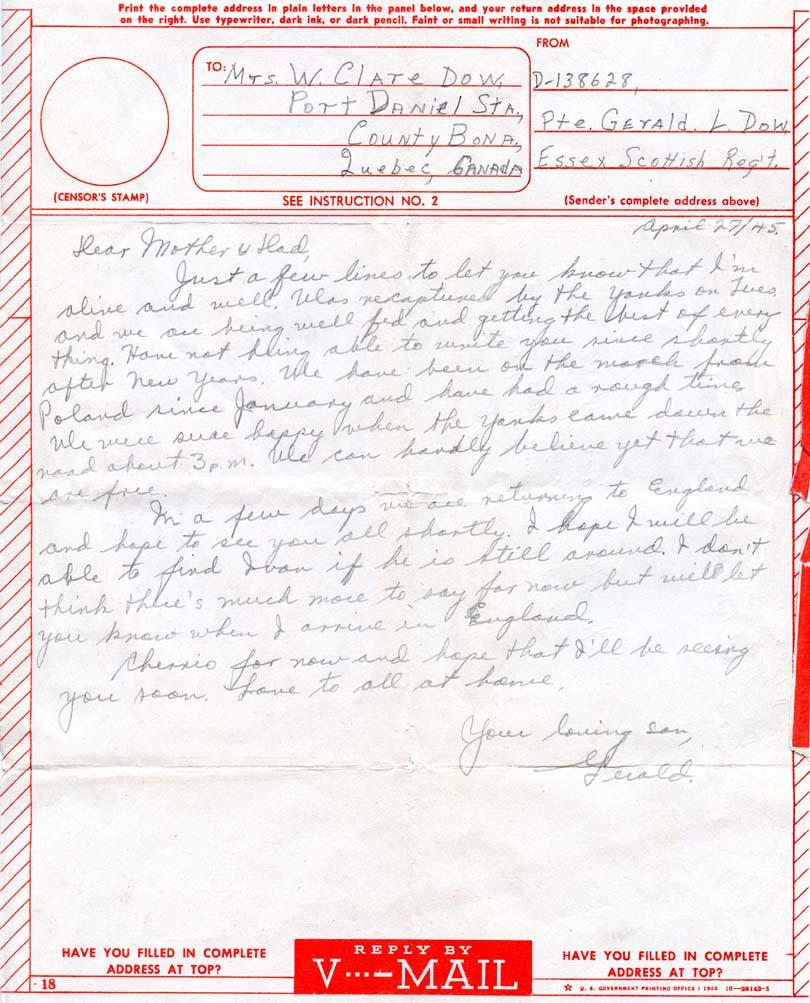 Print the complete address in plain letters in the panel below, and your return address in the space provided
on the right. Use typewriter, dark ink, or dark pencil. Faint or small writing is not suitable for photographing.
(CENSOR'S STAMP)
TO: Mrs. W. Clare Dow,
Port Daniel Sta.,
County Bona.,
Quebec, Canada
SEE INSTRUCTION NO. 2
FROM
D-138628,
Pte. Gerald. L. Dow
Essex Scottish Reg't.
(Sender's complete address above)
April 27/45.
Dear Mother & Dad,
Just a few lines to let you know that I'm
alive and well. Was recaptured by the Yanks on Tues.
and we are being well fed and getting the best of every
thing. Have not being able to write you since shortly
after New Years. We have been on the march from
Poland since January and have had a rough time.
We were sure happy when the Yanks came down the
road about 3 p.m. We can hardly believe yet that we
are free.
In a few days we are returning to England
and hope to see you all shortly. I hope I will be
able to find Ivan if he is still around. I don't
think there's much more to say for now but will let
you know when I arrive in England.
Cherrio for now and hope that I'll be seeing
you soon. Love to all at home.
Your loving son,
Gerald.
HAVE YOU FILLED IN COMPLETE
ADDRESS AT TOP?
REPLY BY
V···—MAIL
HAVE YOU FILLED IN COMPLETE
ADDRESS AT TOP?
18
☆ U. S. GOVERNMENT PRINTING OFFICE : 1943 16—28143-5